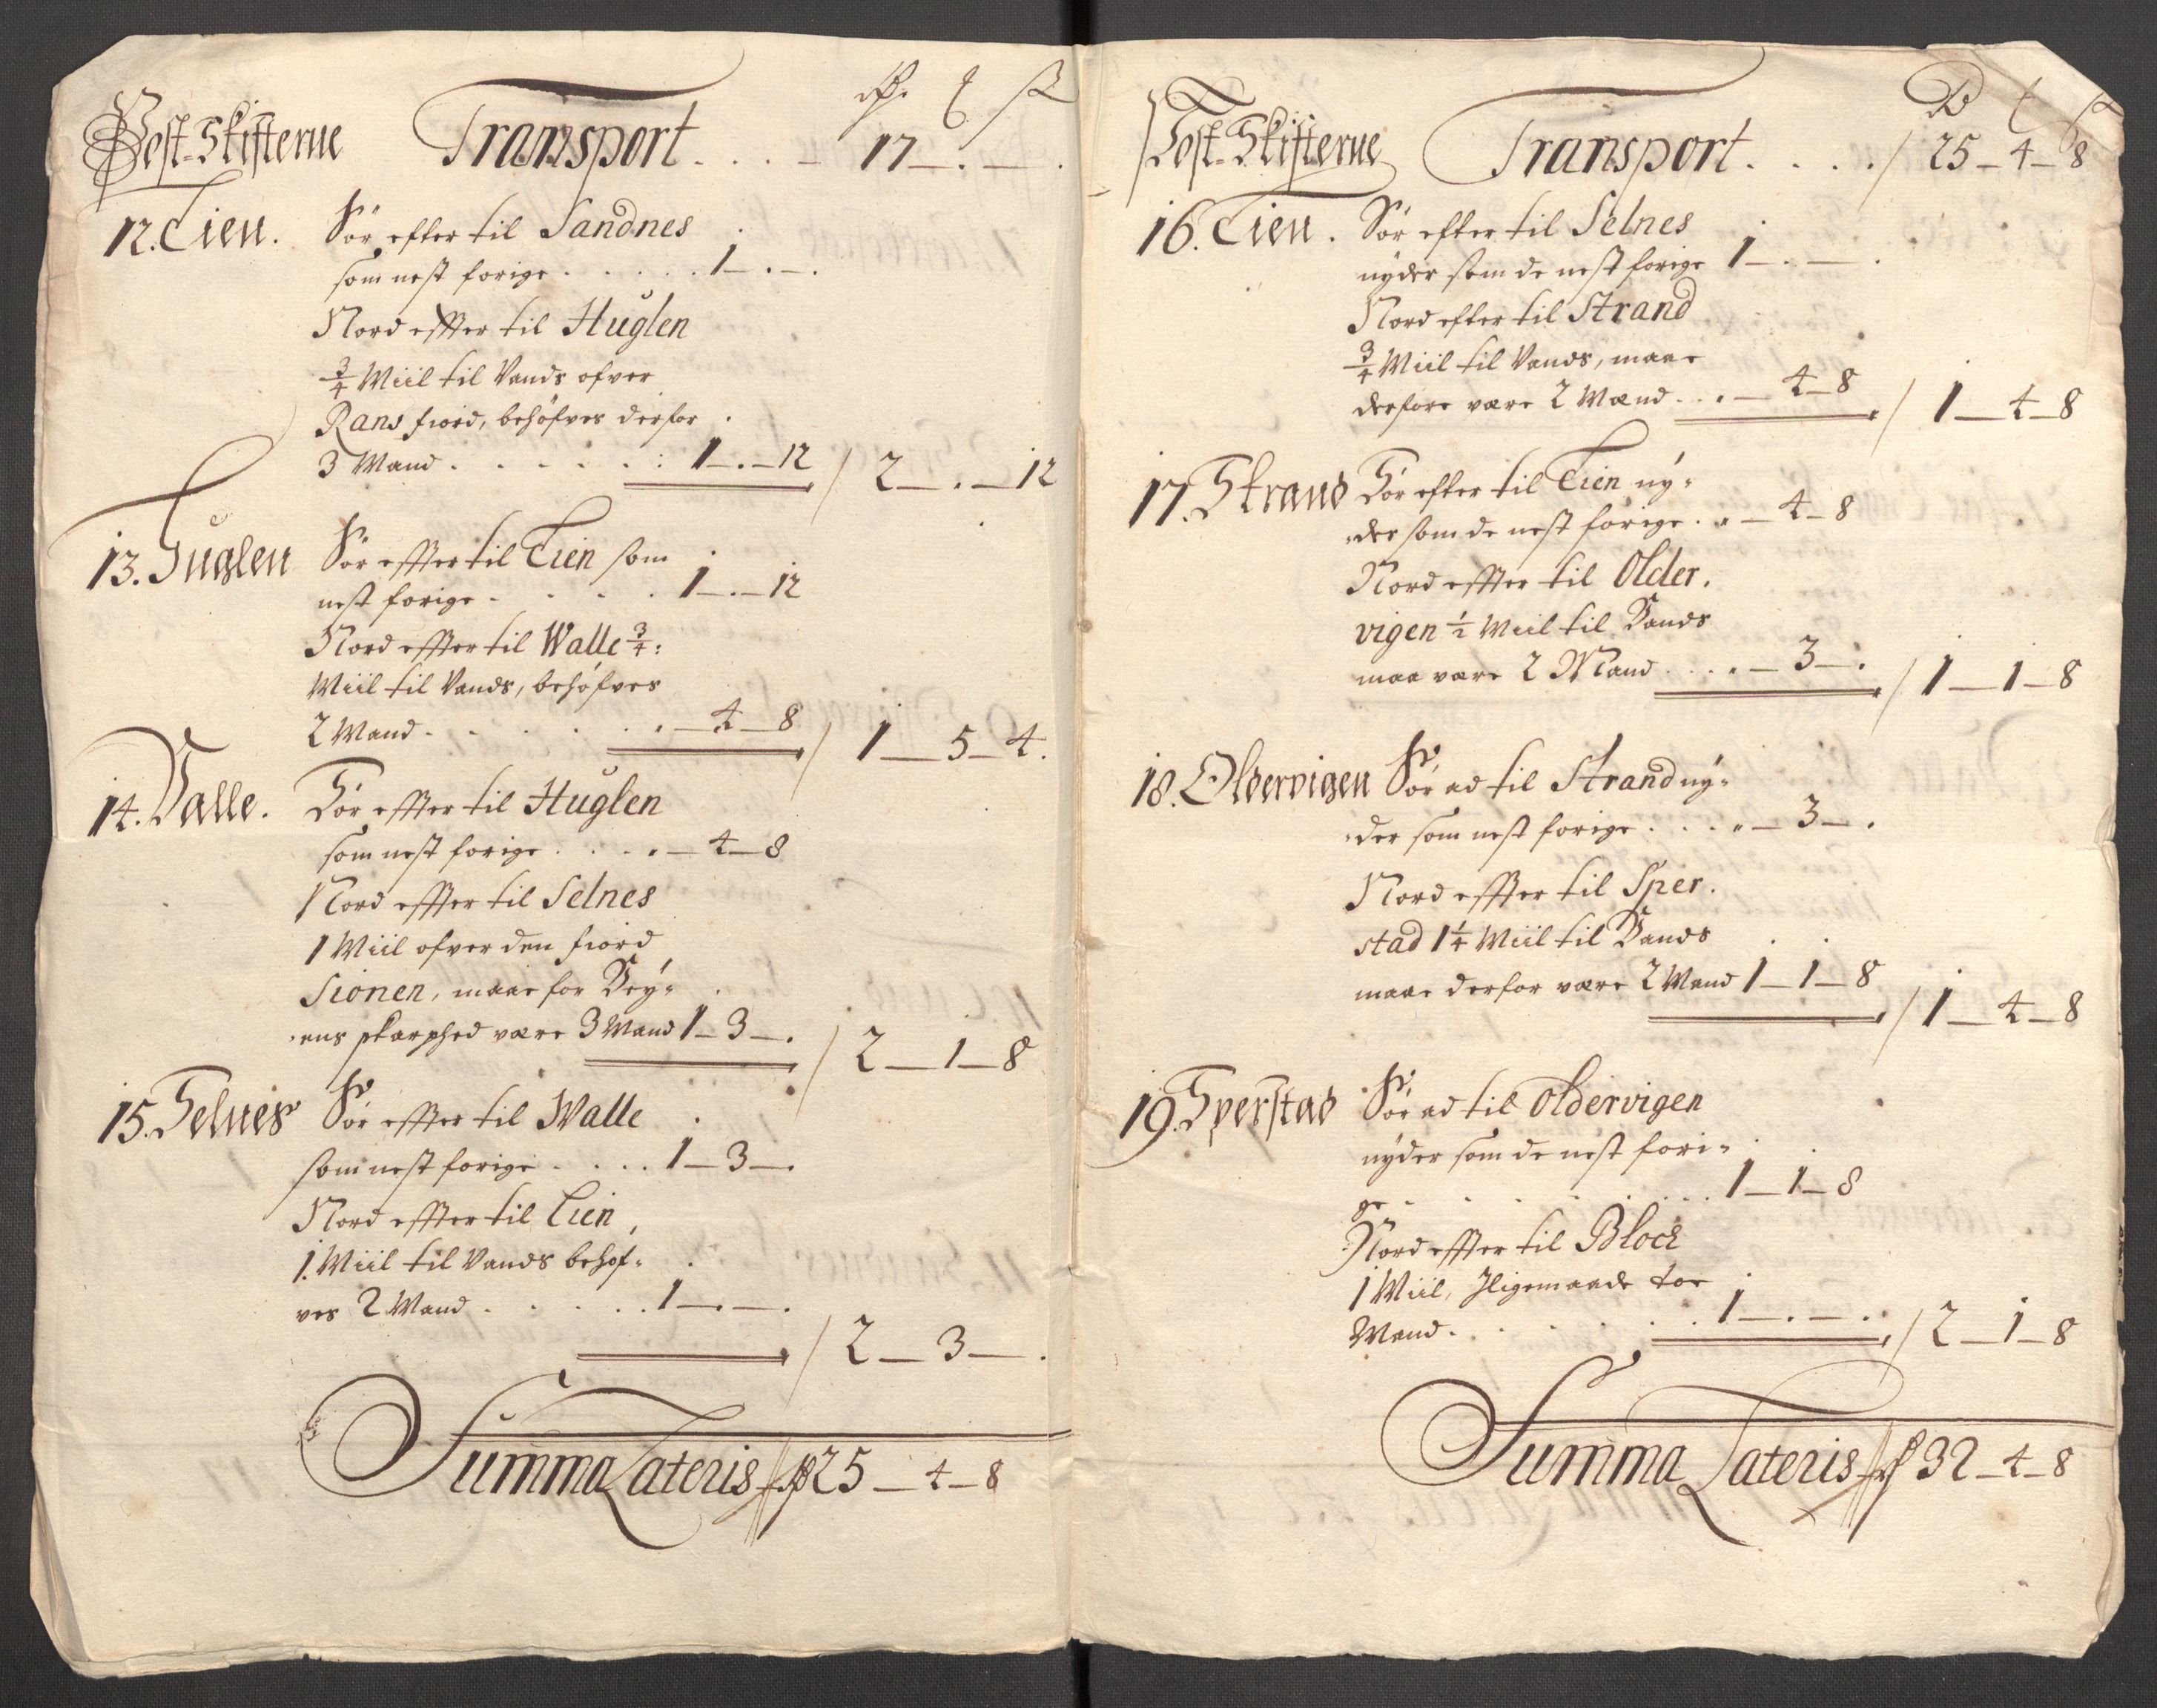 Post-Skifterne Transport . . . . 17 _ . _ .
12. Tien. Sör efter til Sandnes
som nest forige . . . . . 1 _ . _ .
Nord effter til Huglen
3/4 Miil til Vands ofver
Rans fiord, behöfves derfor
3 Mand . . . . . . 1 _ . _ 12 / 2 _ . _ 12
13. Huglen Sör effter til Tien som
nest forige . . . . 1 _ . _ 12
Nord effter til Walle 3/4
Miil til Vands, behöfves
2 Mand . . . . . . _ 4 _ 8 / 1 _ 5 _ 4.
14. Valle. Sör effter til Huglen
som nest forige . . . . _ 4 _ 8
Nord effter til Selnes
1 Miil ofver den fiord
Sionen, maae for Vey-
ens skarphed være 3 Mand 1 _ 3 _ . / 2 _ 1 _ 8
15. Selnes Sör effter til Walle
som nest forige . . . . 1 _ 3 _ .
Nord effter til Tien,
1. Miil til Vands behöf-
ves 2 Mand . . . . . 1 _ . _ .
/ 2 _ 3 _ .
Summa Lateris 25 _ 4 _ 8
Post-Skifterne Transport . . . . / 25 _ 4 _ 8
16. Tien. Sör efter til Selnes
nyder som de nest forige 1 _ . _ .
Nord efter til Strand
3/4 Miil til Vands, maae
derfore være 2 Mænd . . . _ 4 _ 8 / 1 _ 4 _ 8
17. Strand Sör efter til Tien ny-
der som de nest forige . . _ 4 _ 8
Nord effter til Older.
vigen 1/2 Miil til Vands
maa være 2 Mand . . . . _ 3 _ . / 1 _ 1 _ 8
18. Oldervigen Sör ad til Strand ny-
der som nest forige . . . . _ 3 _ .
Nord effter til Sper.
stad 1 1/4 Miil til Vands
maae derfor være 2 Mand 1 _ 1 _ 8
/ 1 _ 4 _ 8
19. Sperstad Sör ad til Oldervigen
nyder som de nest fori-
ge . . . . . . . . 1 _ 1 _ 8
Nord effter til Block
1 Miil, Iligemaade toe
Mand . . . . . . 1 _ . _ . . / 2 _ 1 _ 8
Summa Lateris 32 _ 4 _ 8